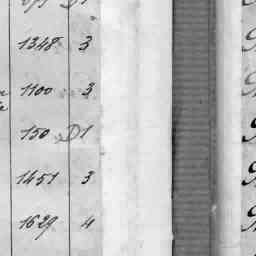 1348 3
1100 3
150 D1
1451 3
1629 4